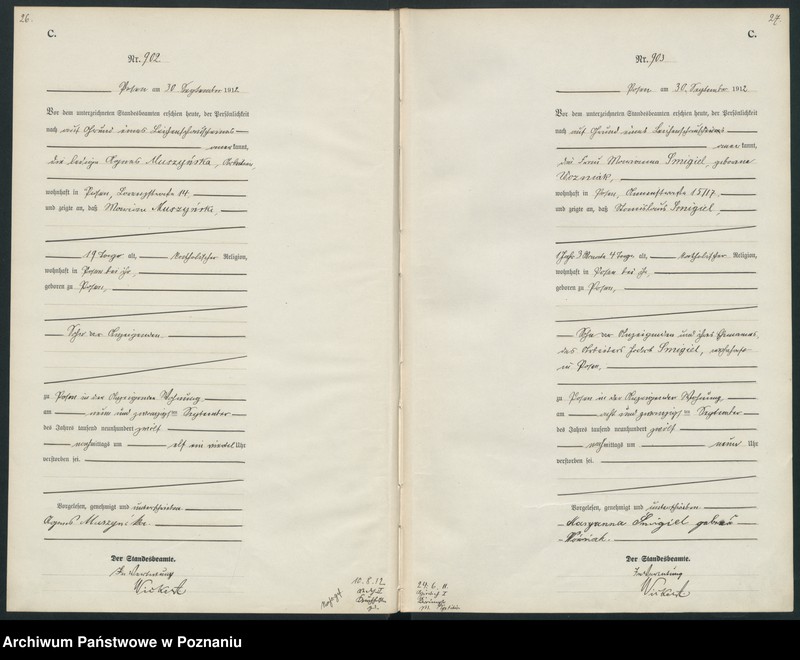 26.
C.
Nr. 902
Posen am 30 September 1912
Vor dem unterzeichneten Standesbeamten erschien heute, der Persönlichkeit
nach auf Grund eines Leichenschauscheines
anerkannt,
die ledige Agnes Muszyńska,
wohnhaft in Posen, 14
und zeigte an, daß Marian Muszyński,
19 Tage alt, katholischer Religion,
wohnhaft in Posen bei ihr,
geboren zu Posen,
Sohn der Anzeigenden
zu Posen in der Anzeigenden Wohnung
am neun und zwanzigsten September
des Jahres tausend neunhundert zwölf
nachmittags um elf ein viertel Uhr
verstorben sei.
Vorgelesen, genehmigt und unterschrieben
Agnes Muszyńska
Der Standesbeamte.
In Vertretung
10. 8. 12
27.
C.
Nr. 903
Posen am 30. September 1912
Vor dem unterzeichneten Standesbeamten erschien heute, der Persönlichkeit
nach auf Grund eines Leichenschauscheines
anerkannt,
die Frau Maryanna Smigiel, geborene
Wozniak,
wohnhaft in Posen, 15/17.
und zeigte an, daß Smigiel,
1 Jahr 3 Monate 4 Tage alt, katholischer Religion,
wohnhaft in Posen bei ihr,
geboren zu Posen,
Sohn der Anzeigenden und ihres Ehemannes,
des Arbeiters Smigiel, wohnhaft
in Posen.
zu Posen in der Anzeigenden Wohnung
am acht und zwanzigsten September
des Jahres tausend neunhundert zwölf
nachmittags um neun Uhr
verstorben sei.
Vorgelesen, genehmigt und unterschrieben
Maryanna Śmigiel geborene
Woźniak.
Der Standesbeamte.
In Vertretung
24. 6. 11.
Archiwum Państwowe w Poznaniu